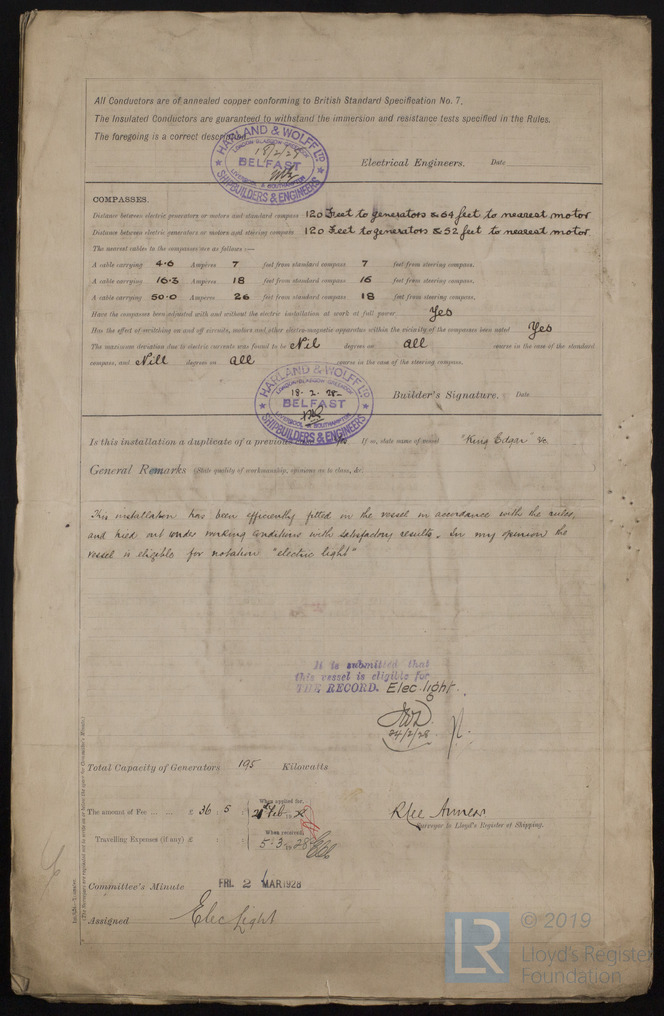 All Conductors are of annealed copper conforming to British Standard Specification No. 7.
The Insulated Conductors are guaranteed to withstand the immersion and resistance tests specified in the Rules.
The foregoing is a correct description
HARLAND & WOLFF LTD
LONDON GLASGOW GREENOCK
18/2/28
BELFAST
LIVERPOOL & SOUTHAMPTON
SHIPBUILDERS & ENGINEERS
Electrical Engineers. Date
COMPASSES.
Distance between electric generators or motors and standard compass 120 Feet to generators & 64 feet to nearest motor
Distance between electric generators or motors and steering compass 120 Feet to generators & 52 feet to nearest motor.
The nearest cables to the compasses are as follows :—
A cable carrying 4·6 Ampères 7 feet from standard compass 7 feet from steering compass.
A cable carrying 16·3 Ampères 18 feet from standard compass 16 feet from steering compass.
A cable carrying 50·0 Ampères 26 feet from standard compass 18 feet from steering compass.
Have the compasses been adjusted with and without the electric installation at work at full power Yes
Has the effect of switching on and off circuits, motors and other electro-magnetic apparatus within the vicinity of the compasses been noted Yes
The maximum deviation due to electric currents was found to be Nil degrees on all course in the case of the standard
compass, and Nill degrees on all course in the case of the steering compass.
HARLAND & WOLFF LTD
LONDON GLASGOW GREENOCK
18·2·28
BELFAST
LIVERPOOL & SOUTHAMPTON
SHIPBUILDERS & ENGINEERS
Builder's Signature. Date
Is this installation a duplicate of a previous case Yes If so, state name of vessel "King Edgar" &c.
General Remarks (State quality of workmanship, opinions as to class, &c.
This installation has been efficiently fitted on the vessel in accordance with the rules,
and tried out under working conditions with satisfactory results. In my opinion the
vessel is eligible for notation "electric light"
It is submitted that
this vessel is eligible for
THE RECORD. Elec. light.
24/2/28
Total Capacity of Generators 195 Kilowatts
The amount of Fee ... ... £ 36 : 5 : When applied for, 21st Feb. 1928
Travelling Expenses (if any) £ : : When received, 5·3·1928
Surveyor to Lloyd's Register of Shipping.
Committee's Minute FRI. 2 MAR 1928
Assigned Elec Light
LR © 2019
Lloyd's Register
Foundation